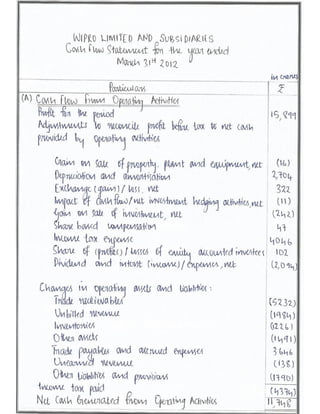 WIPRO LIMITED AND SUBSIDIARIES
Cash Flow Statement for the year ended
March 31st 2012
in crores
Particulars ₹
(A) Cash Flow From Operating Activities
Profit for the period 15,899
Adjustments to reconcile profit before tax to net cash
provided by operating activities
Gain on sale of property, plant and equipment, net (16)
Depreciation and amortisation 2,704
Exchange (gain) / loss, net 322
Impact of cash flow/net investment hedging activities, net (11)
Gain on sale of investment, net (242)
Share based compensation 47
Income tax expense 4046
Share of (profits) / losses of equity accounted investees 102
Dividend and interest (income) / expenses, net (2,094)
Changes in operating assets and liabilities:
Trade recievables (5232)
Unbilled revenue (1984)
Inventories (2261)
Other assets (1491)
Trade payables and accrued expenses 3646
Unearned revenue (138)
Other liabilities and provisions (1790)
Income tax paid (4374)
Net Cash Generated From Operating Activities 11,748